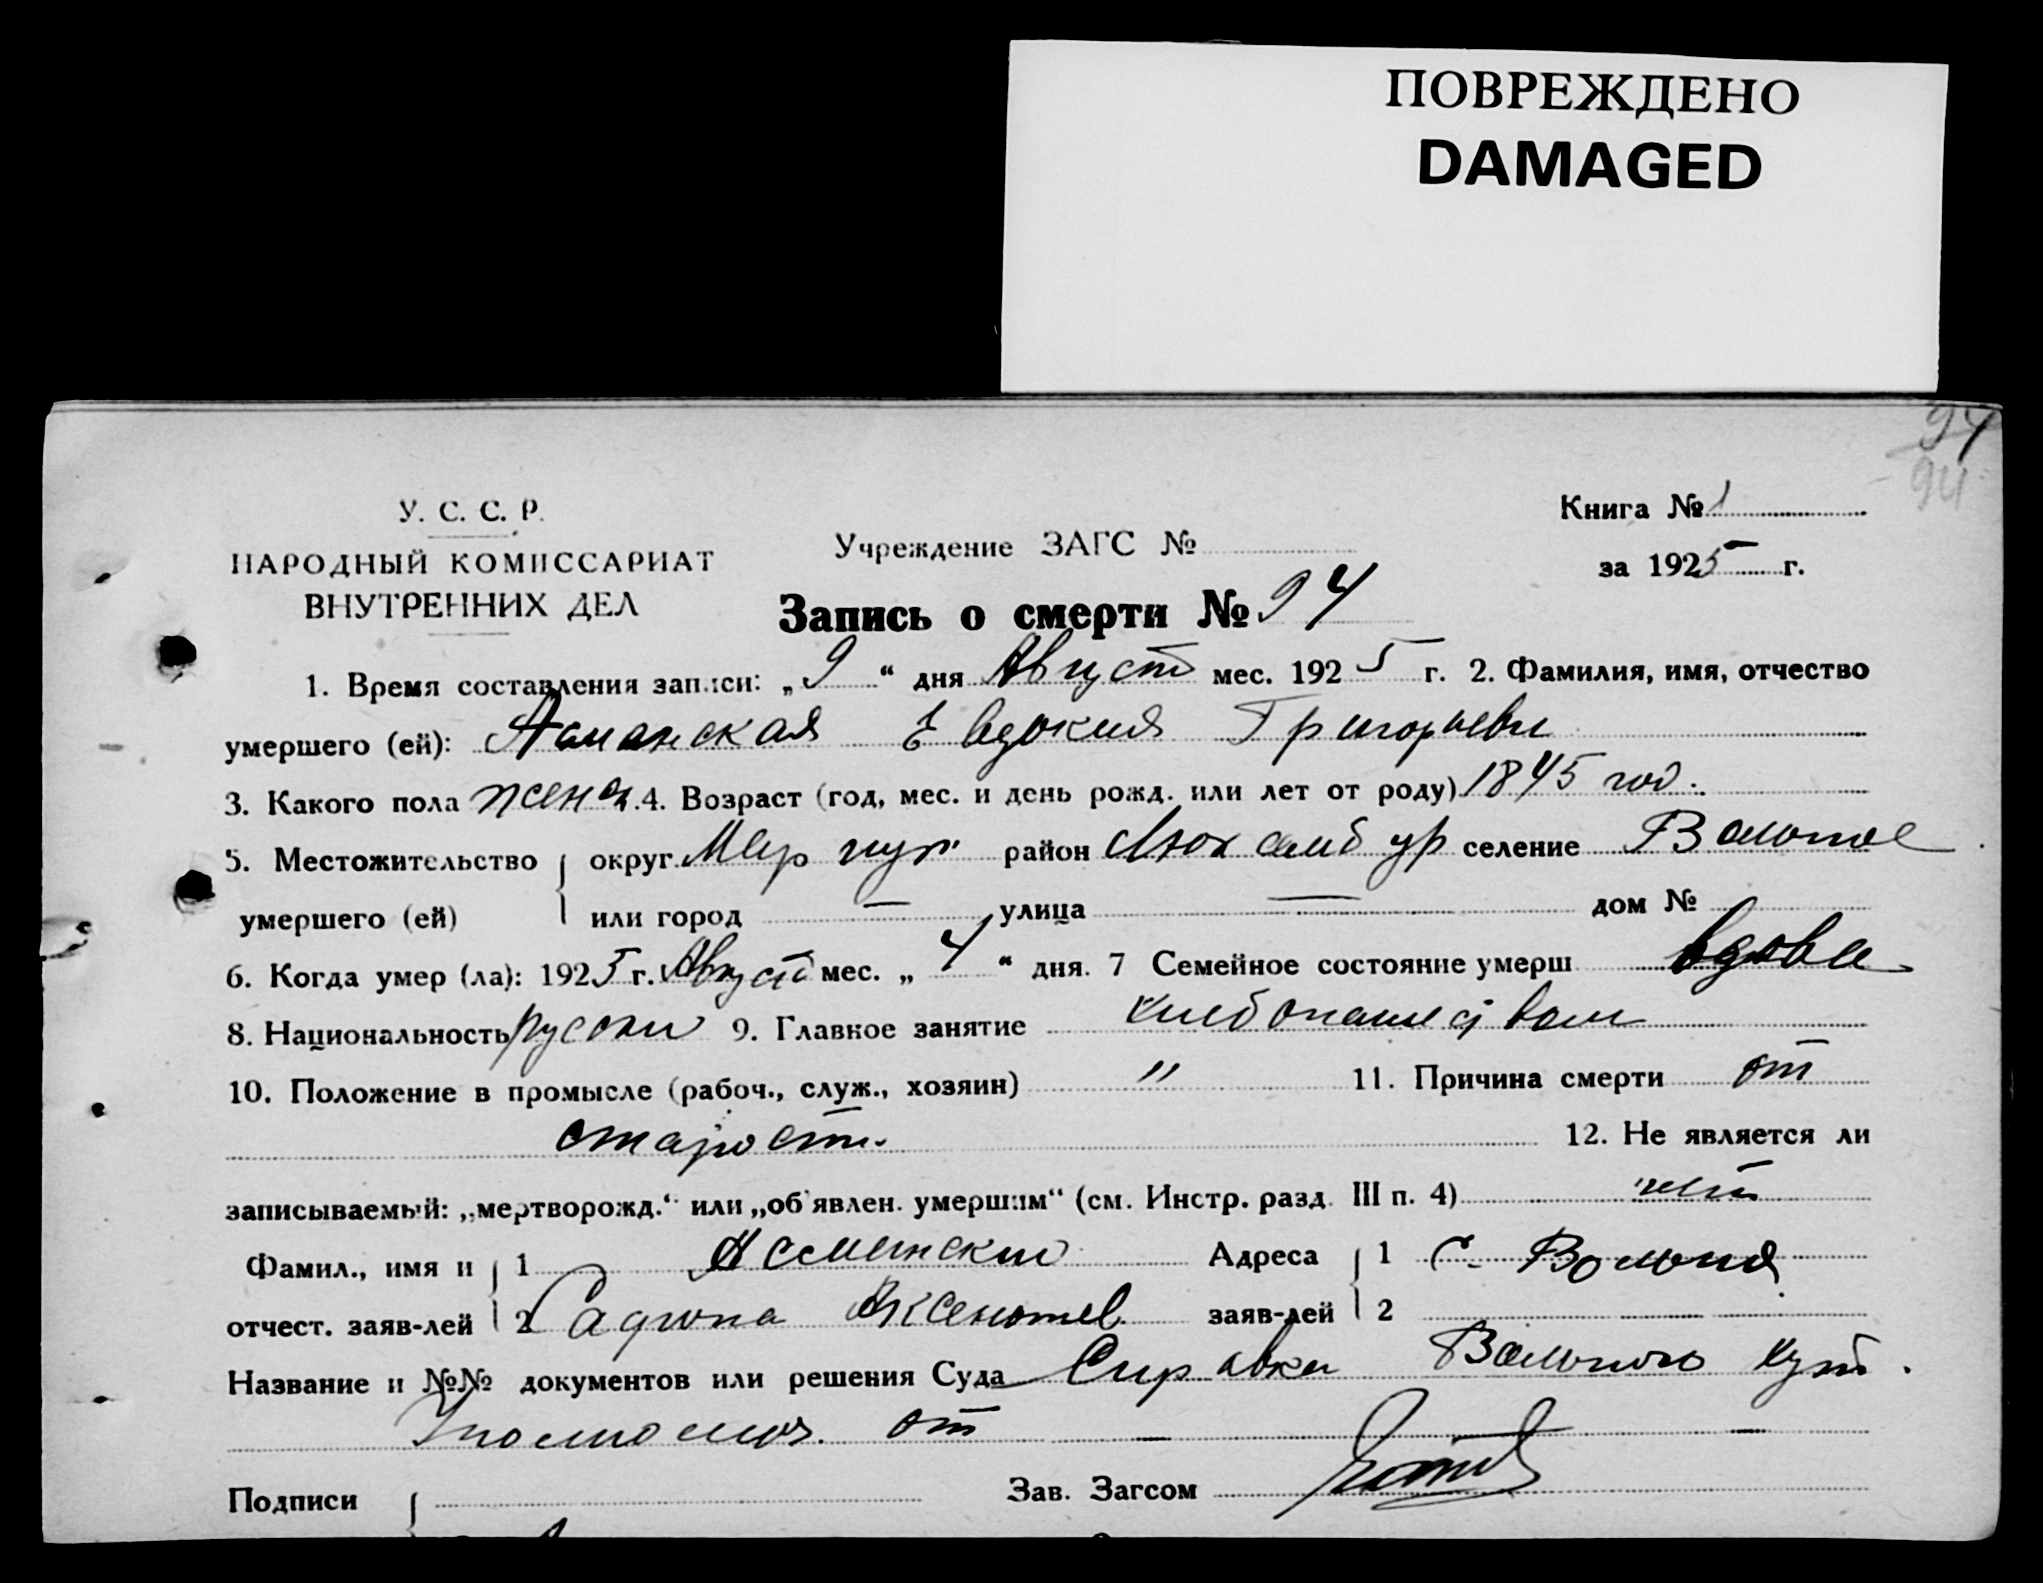 ПОВРЕЖДЕНО
DAMAGED
94
94
У. С. С. Р.
Книга № 1
НАРОДНЫЙ КОМИССАРИАТ
ВНУТРЕННИХ ДЕЛ
Учреждение ЗАГС №
за 1925 г.
Запись о смерти № 94
1. Время составления записи: „9“ дня Август мес. 1925 г. 2. Фамилия, имя, отчество
умершего (ей): Асманская Евдокия Григорьевн
3. Какого пола жена. 4. Возраст (год, мес. и день рожд. или лет от роду) 1845 год.
5. Местожительство округ Мариуп район Люксембур селение
умершего (ей) или город — улица — дом №
6. Когда умер (ла): 1925 г. Август мес. „4“ дня. 7 Семейное состояние умерш вдова
8. Национальность русски 9. Главное занятие
10. Положение в промысле (рабоч., служ., хозяин) " 11. Причина смерти от
старости.
12. Не является ли
записываемый: „мертворожд.“ или „об'явлен. умершим“ (см. Инстр. разд. III п. 4) нет
Фамил., имя и 1 Асманский Адреса 1 с.
отчест. заяв-лей 2 заяв-лей 2
Название и №№ документов или решения Суда Справка
от —
Подписи
Зав. Загсом